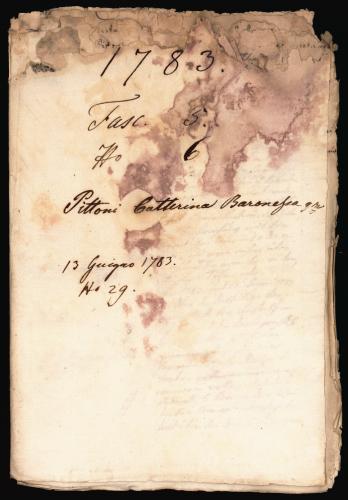 1783.
Fasc. 5.
No 6
Pittoni Catterina Baronessa
13 Guigno 1783.
No 29.